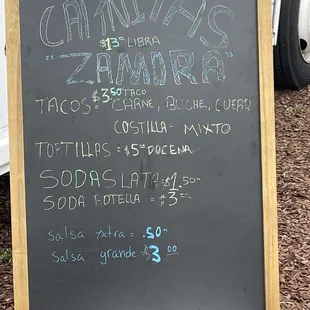 CARNITAS
$13.00 LIBRA
"ZAMORA"
$3.50 TACO
TACOS= CARNE, BUCHE, CUERO
COSTILLA- MIXTO
TORTILLAS = $5.00 DOCENA
SODAS LATA = $1.50
SODA BOTELLA = $3.00
salsa extra = .50
salsa grande = $3.00